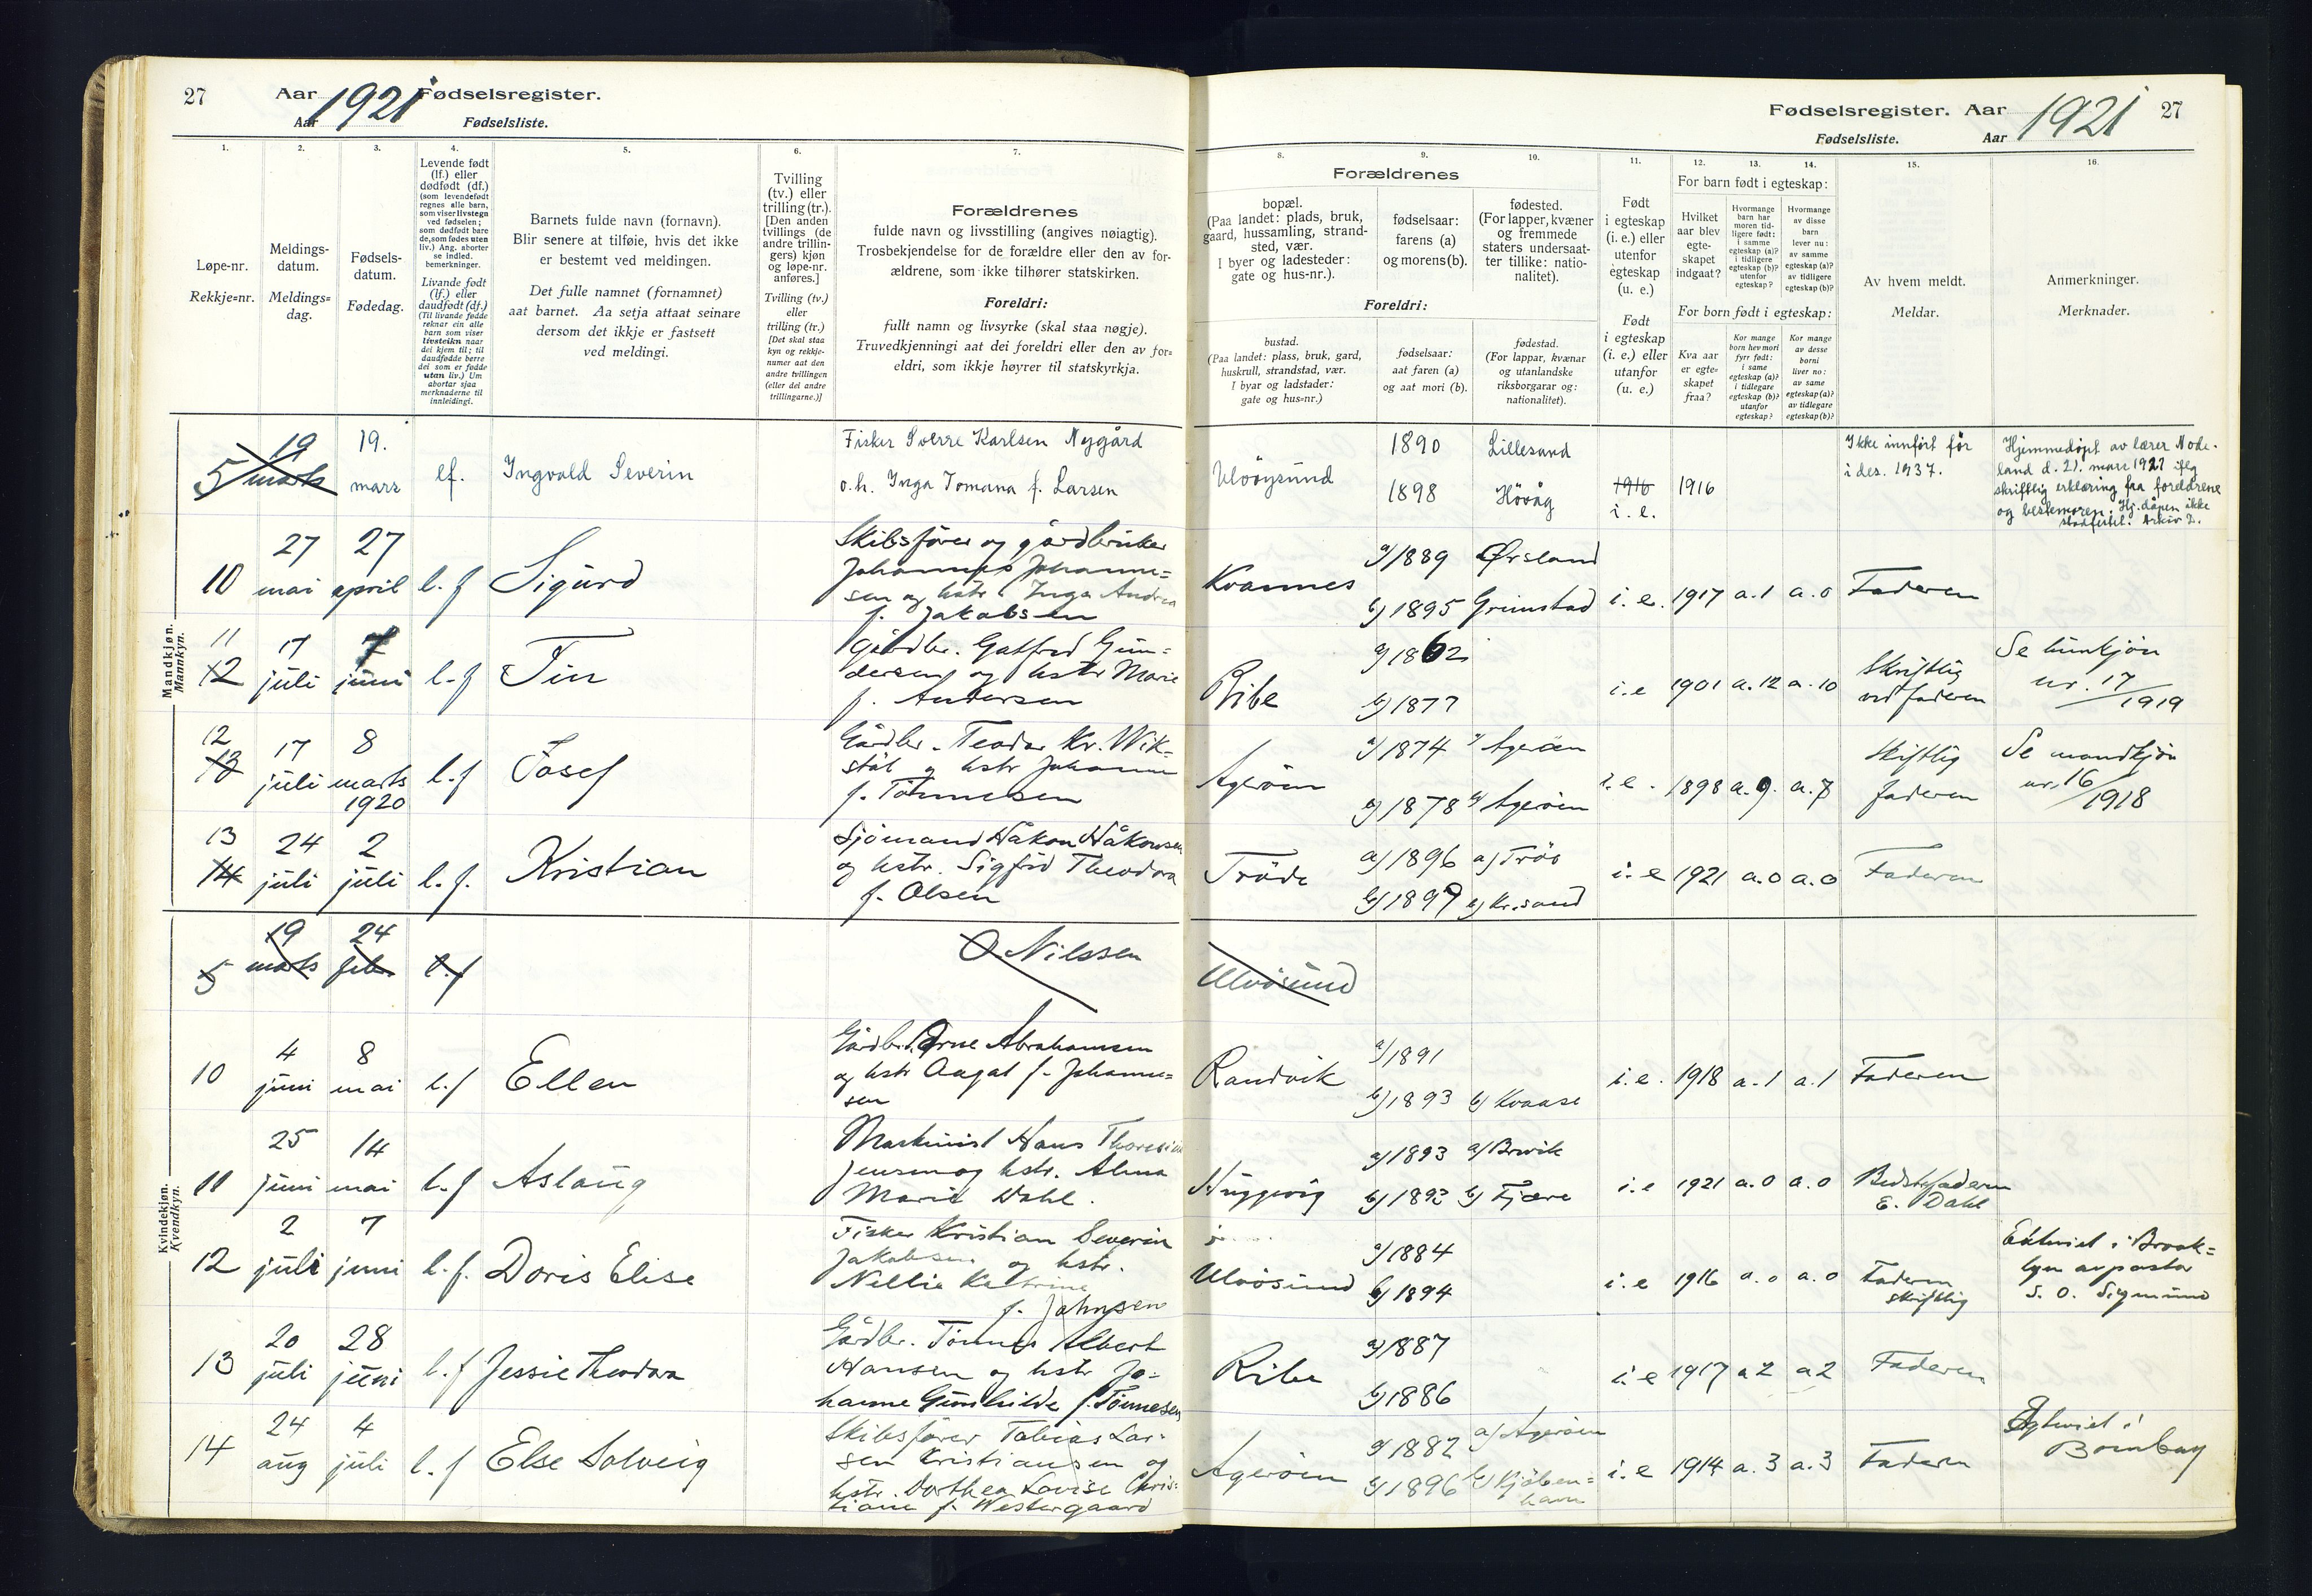 27 Aar 1921 Fødselsregister.
Aar Fødselsliste.
1. 2. 3. 4. 5. 6. 7.
Løpe-nr.
Rekkje=nr.
Meldings-
datum.
Meldings=
dag.
Fødsels-
datum.
Fødedag.
Levende født
(lf.) eller
dødfødt (df.)
(som levendefødt
regnes alle barn,
som viser livstegn
ved fødselen;
som dødfødt bare
de, som fødes uten
liv.) Ang. aborter
se indled.
bemerkninger.
Livande født
(lf.) eller
daudfødt (df.)
(Til livande fødde
reknar ein alle
barn som viser
livsteikn naar
dei kjem til; til
daudfødde berre
dei som er fødde
utan liv.) Um
abortar sjaa
merknaderne til
innleidingi.
Barnets fulde navn (fornavn).
Blir senere at tilføie, hvis det ikke
er bestemt ved meldingen.
Det fulle namnet (fornamnet)
aat barnet. Aa setja attaat seinare
dersom det ikkje er fastsett
ved meldingi.
Tvilling
(tv.) eller
trilling (tr.).
[Den anden
tvillings (de
andre trillin-
gers) kjøn
og løpe-nr.
anføres.]
Tvilling (tv.)
eller
trilling (tr.)
[Det skal staa
kyn og rekkje-
numer aat den
andre tvillingen
(eller dei andre
trillingarne.)]
Forældrenes
fulde navn og livsstilling (angives nøiagtig).
Trosbekjendelse for de forældre eller den av for-
ældrene, som ikke tilhører statskirken.
Foreldri:
fullt namn og livsyrke (skal staa nøgje).
Truvedkjenningi aat dei foreldri eller den av for=
eldri, som ikkje høyrer til statskyrkja.
Mandkjøn.
Mannkyn.
5 19 marts 19. mars lf. Ingvald Severin
Fisker Sverre Karlsen Nygård
o.h. Inga Tomana f. Larsen
10 27 mai 27 april l.f Sigurd
Skibsfører og gårdbruker
Johannes Johanne=
sen og hstr Inga Andrea
f. Jakobsen
11 12 17 juli 7 juni l.f Tin
Gårdbr. Gotfred Gun=
dersen og hstr Marie
f. Andersen
12 13 17 juli 8 marts 1920 l.f Josef
Gårdbr. Teodor Kr. Wik=
stöl og hstr Johanne
f. Tönnesen
13 14 24 juli 2 juli l.f. Kristian
Sjömand Håkon Håkonsen
og hstr. Sigfrid Theodora
f. Olsen
Kvindekjøn.
Kvendkyn.
5 19 marts 24 febr l.f
O Nilssen
10 4 juni 8 mai l.f Ellen
Gårdbr. Arne Abrahamsen
og hstr Aagot f. Johanne=
sen
11 25 juni 14 mai l.f Aslaug
Maskinist Hans
Jensen og hstr. Alma
Marie Dahl.
12 2 juli 7 juni l.f. Doris Elise
Fisker Kristian Severin
Jakobsen og hstr.
Nellie Katrine
f. Johnsen
13 20 juli 28 juni l.f Jessie Theodora
Gårdbr. Tönnes Albert
Hansen og hstr Jo=
hanne Gunhilde f. Tönnesen
14 24 aug 4 juli l.f Else Solveig
Skibsfører Tobias Lar=
sen Kristiansen og
hstr. Dorthea Lovise Chris=
tiane f. Westergaard
Fødselsregister. Aar 1921 27
Fødselsliste. Aar
8. 9. 10. 11. 12. 13. 14. 15. 16.
Forældrenes
bopæl.
(Paa landet: plads, bruk,
gaard, hussamling, strand-
sted, vær.
I byer og ladesteder:
gate og hus-nr.).
fødselsaar:
farens (a)
og morens (b).
fødested.
(For lapper, kvæner
og fremmede
staters undersaat-
ter tillike: natio-
nalitet).
Foreldri:
bustad.
(Paa landet: plass, bruk, gard,
huskrull, strandstad, vær.
I byar og ladstader:
gate og hus=nr.)
fødselsaar:
aat faren (a)
og aat mori (b).
fødestad.
(For lappar, kvænar
og utanlandske
riksborgarar og:
nationalitet).
Født
i egteskap
(i. e.) eller
utenfor
egteskap
(u. e.)
Født
i egteskap
(i. e.) eller
utanfor
(u. e.)
For barn født i egteskap:
Hvilket
aar blev
egte-
skapet
indgaat?
Hvormange
barn har
moren tid-
ligere født:
i samme
egteskap (a)?
i tidligere
egteskap (b)?
utenfor
egteskap?
Hvormange
av disse
barn
lever nu:
av samme
egteskap (a)?
av tidligere
egteskap (b)?
For born født i egteskap:
Kva aar
er egte-
skapet
fraa?
Kor mange
born hev mori
fyrr født:
i same
egteskap (a)?
i tidlegare
egteskap (b)?
utanfor
egteskap?
Kor mange
av desse
borni
liver no:
av same
egteskap (a)?
av tidlegare
egteskap (b)?
Av hvem meldt.
Meldar.
Anmerkninger.
Merknader.
Ulvöysund 1890 Lillesand
1898 Hövåg 1916 i.e. 1916
Ikke innført før
i des. 1937.
Hjemmedøpt av lærer Node-
land d. 21. mars 1921 iflg
skriftlig erklæring fra foreldrene
og bestemoren. Hj.dåpen ikke
stadfestet. Arkiv 2.
Kvannes a) 1889 Ørsland
b) 1895 Grimstad i.e. 1917 a.1 a.0 Faderen
Ribe a) 1862
b) 1877 i.e 1901 a.12 a.10
Skriftlig
ved faderen
Se kvinkjön
nr. 17/1919
Ageröen a) 1874 a) Ageröen
b) 1878 b) Ageröen i.e. 1898 a.9. a.7
Skriftlig
faderen
Se mandkjön
nr. 16/1918
Tröde a) 1896 a) Tröe
b) 1897 b) Kr.sand i.e 1921 a.0 a.0 Faderen
Ulvösund
Randvik a) 1891
b) 1893 b) Kvaase i.e. 1918 a.1 a.1 Faderen
a) 1893 a) Brevik
b) 1892 b) Fjære i.e 1921 a.0 a.0
Bedstefaderen
E. Dahl
Ulvösund a) 1884
b) 1894 i.e 1916 a.0 a.0
Faderen
skriftlig
Ektviet i Brook=
lyn av pastor
S. O. Sigmund
Ribe a) 1887
b) 1886 i.e 1917 a 2 a 2 Faderen
Ageröen a) 1882 a) Ageröen
b) 1896 b) Kjöben=
havn i.e 1914 a.3 a.3 Faderen
Egteviet i
Bombay